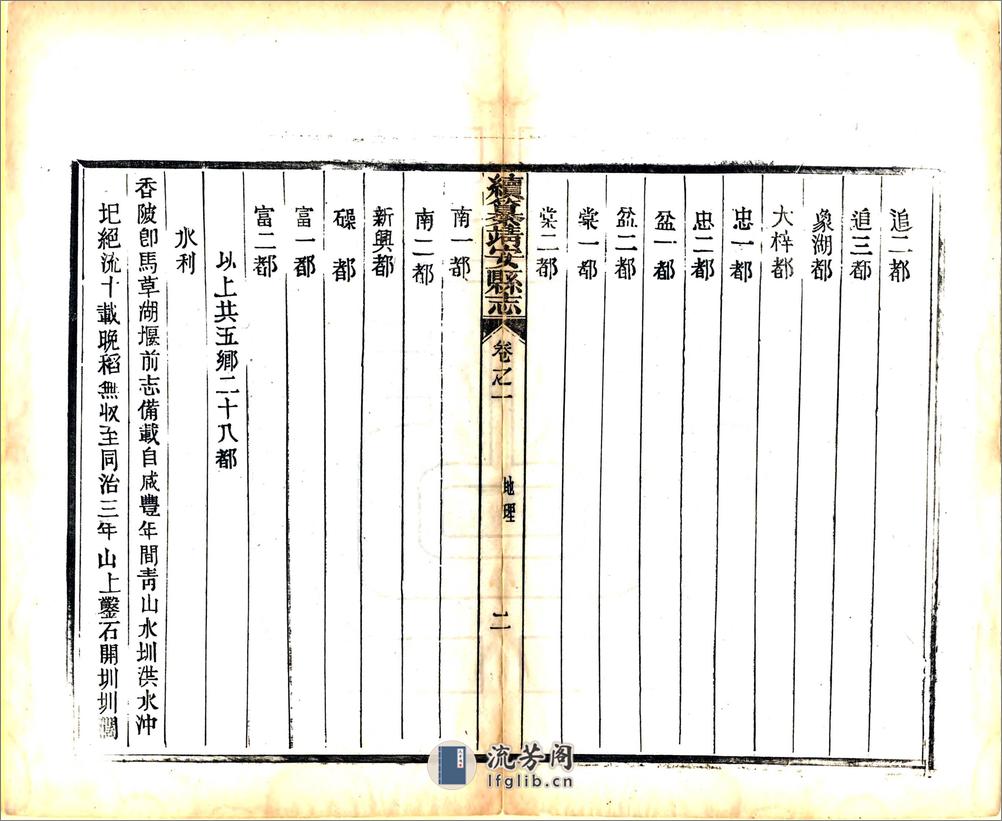 追二都
追三都
象湖都
大梓都
忠一都
忠二都
盆一都
盆二都
棠一都
棠二都
續纂靖安縣志
卷之一
地理
二
南一都
南二都
新興都
磜都
富一都
富二都
以上共五鄉二十八都
水利
香陂卽馬草湖堰前志備載自咸豐年間靑山水圳洪水沖
圮絕流十載晚稻無收至同治三年山上鑿石開圳圳濶
流芳阁
lfglib.cn